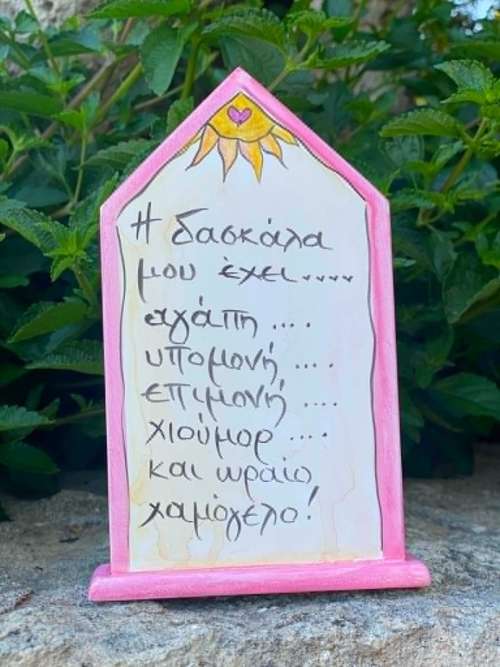 Η δασκάλα
μου έχει.....
αγάπη ....
υπομονή ....
επιμονή ....
χιούμορ ....
και ωραίο
χαμόγελο!